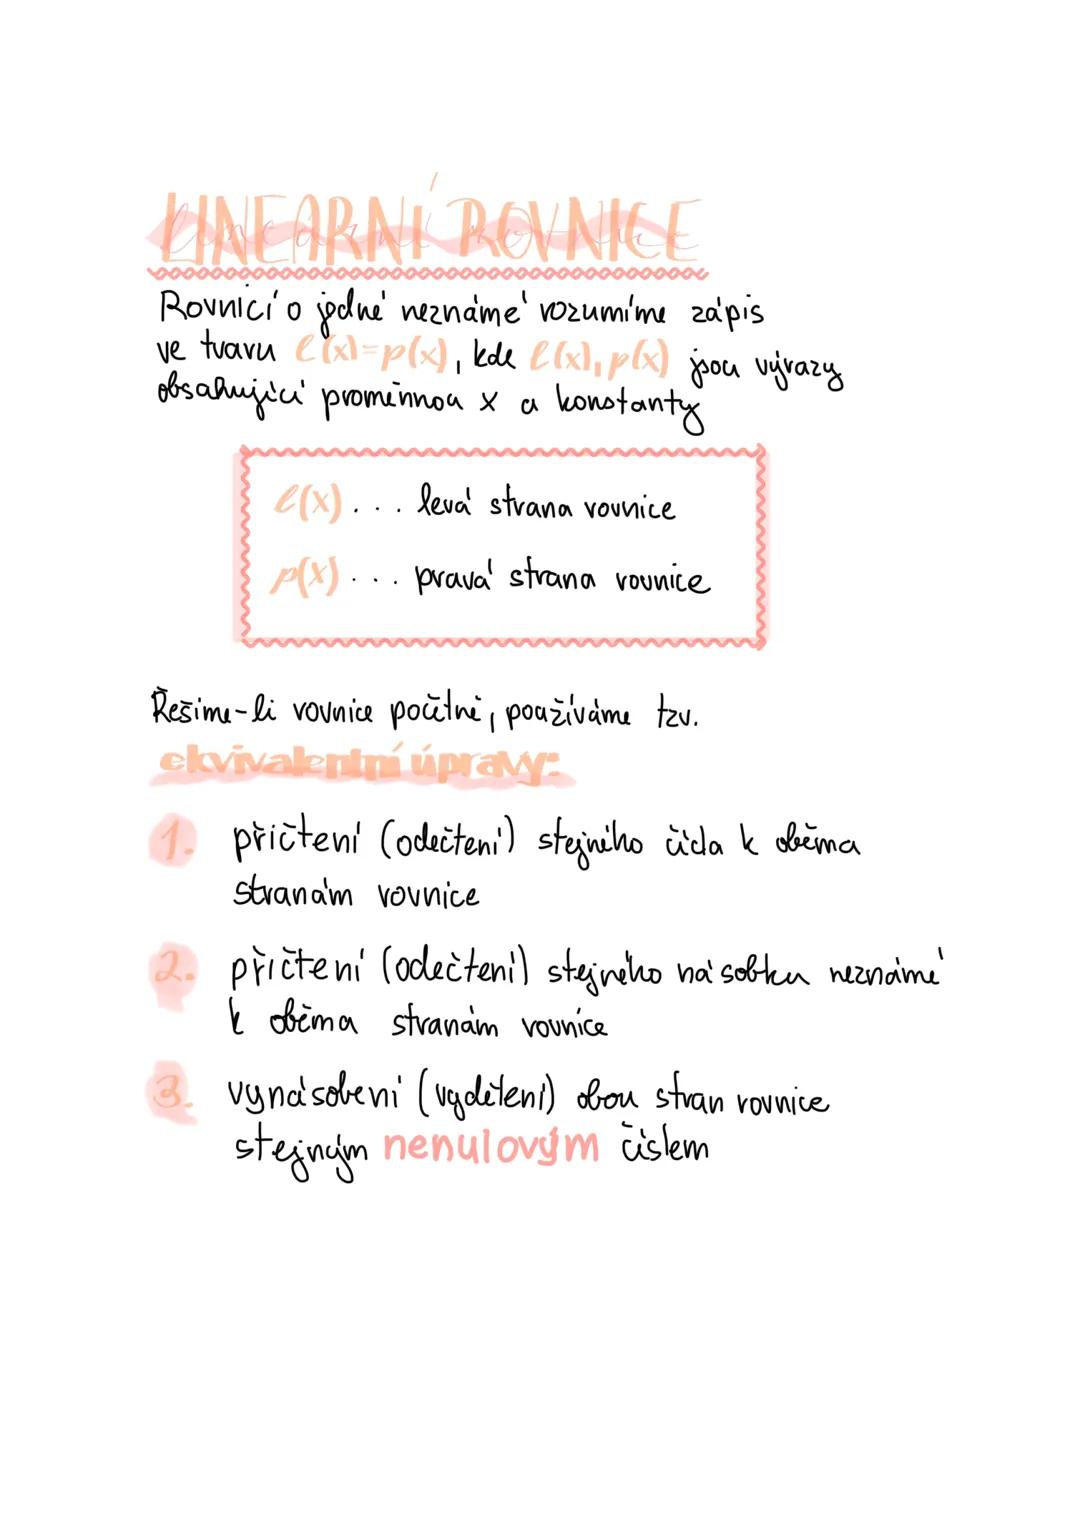 LINEARNÍ ROVNICE
Rovnicí o jedné neznámé rozumíme zápis
ve tvaru l(x)=p(x), kde l(x), p(x) jsou výrazy
obsahující proměnnou x a konstanty
l(x) ... levá strana rovnice
p(x) ... pravá strana rovnice
Řešíme-li rovnice početně, používáme tzv.
ekvivalentní úpravy:
1. přičtení (odečtení) stejného čísla k oběma
stranám rovnice
2. přičtení (odečtení) stejného násobku neznámé
k oběma stranám rovnice
3. vynásobení (vydělení) obou stran rovnice
stejným nenulovým číslem